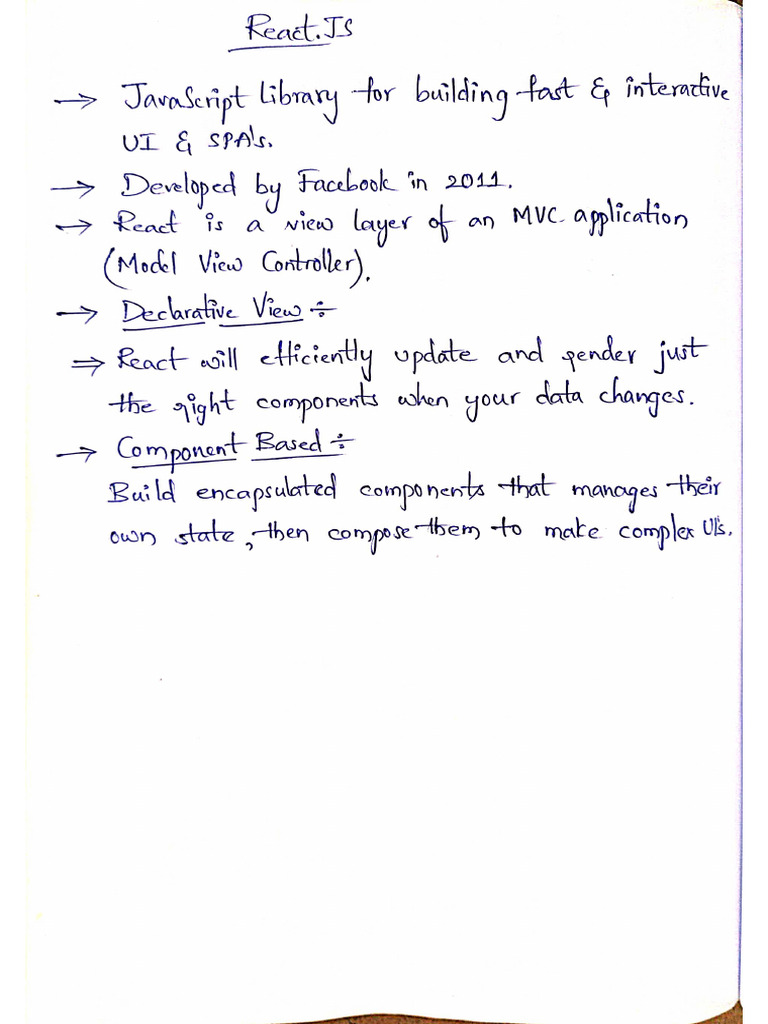 React.JS
→ JavaScript Library for building fast & interactive
UI & SPA's.
→ Developed by Facebook in 2011.
→ React is a view layer of an MVC application
(Model View Controller).
→ Declarative View ÷
⇒ React will efficiently update and render just
the right components when your data changes.
→ Component Based ÷
Build encapsulated components that manages their
own state, then compose them to make complex UI's.